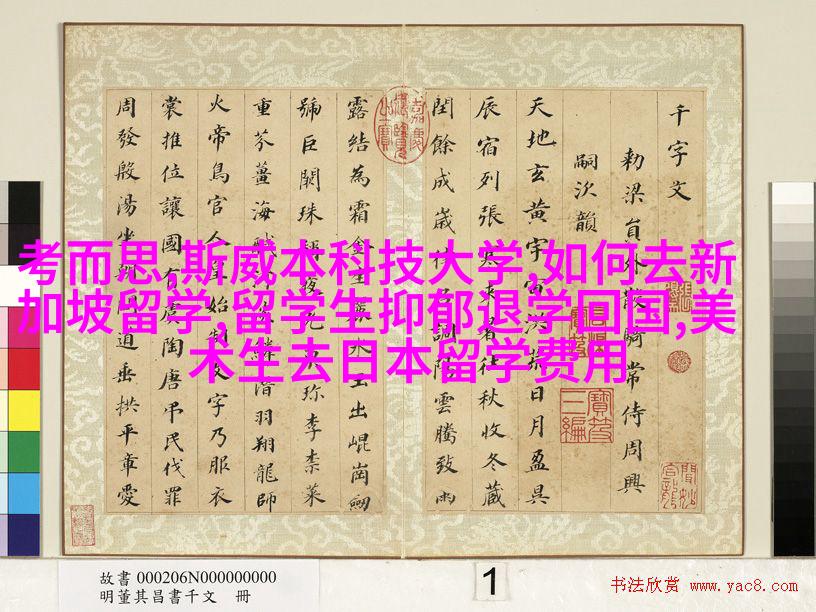 千字文
勅梁員外散騎常侍周興
嗣次韻
天地玄黃宇宙洪荒日月盈昃
辰宿列張寒來暑往秋收冬藏
閏餘成歲律呂調陽雲騰致雨
露結為霜金生麗水玉出崐崗劒
號巨闕珠稱夜光果珍李柰菜
重芥薑海鹹河淡鱗潛羽翔龍師
火帝鳥官人皇始制文字乃服衣
裳推位讓國有虞陶唐弔民伐罪
周發殷湯坐朝問道垂拱平章愛
嘉慶御覽之寶
寶笈三編
考而思,斯威本科技大学,如何去新
加坡留学,留学生抑郁退学回国,美
术生去日本留学费用
故書 000206N000000000
明董其昌書千文 冊
1
书法欣赏 www.yac8.com